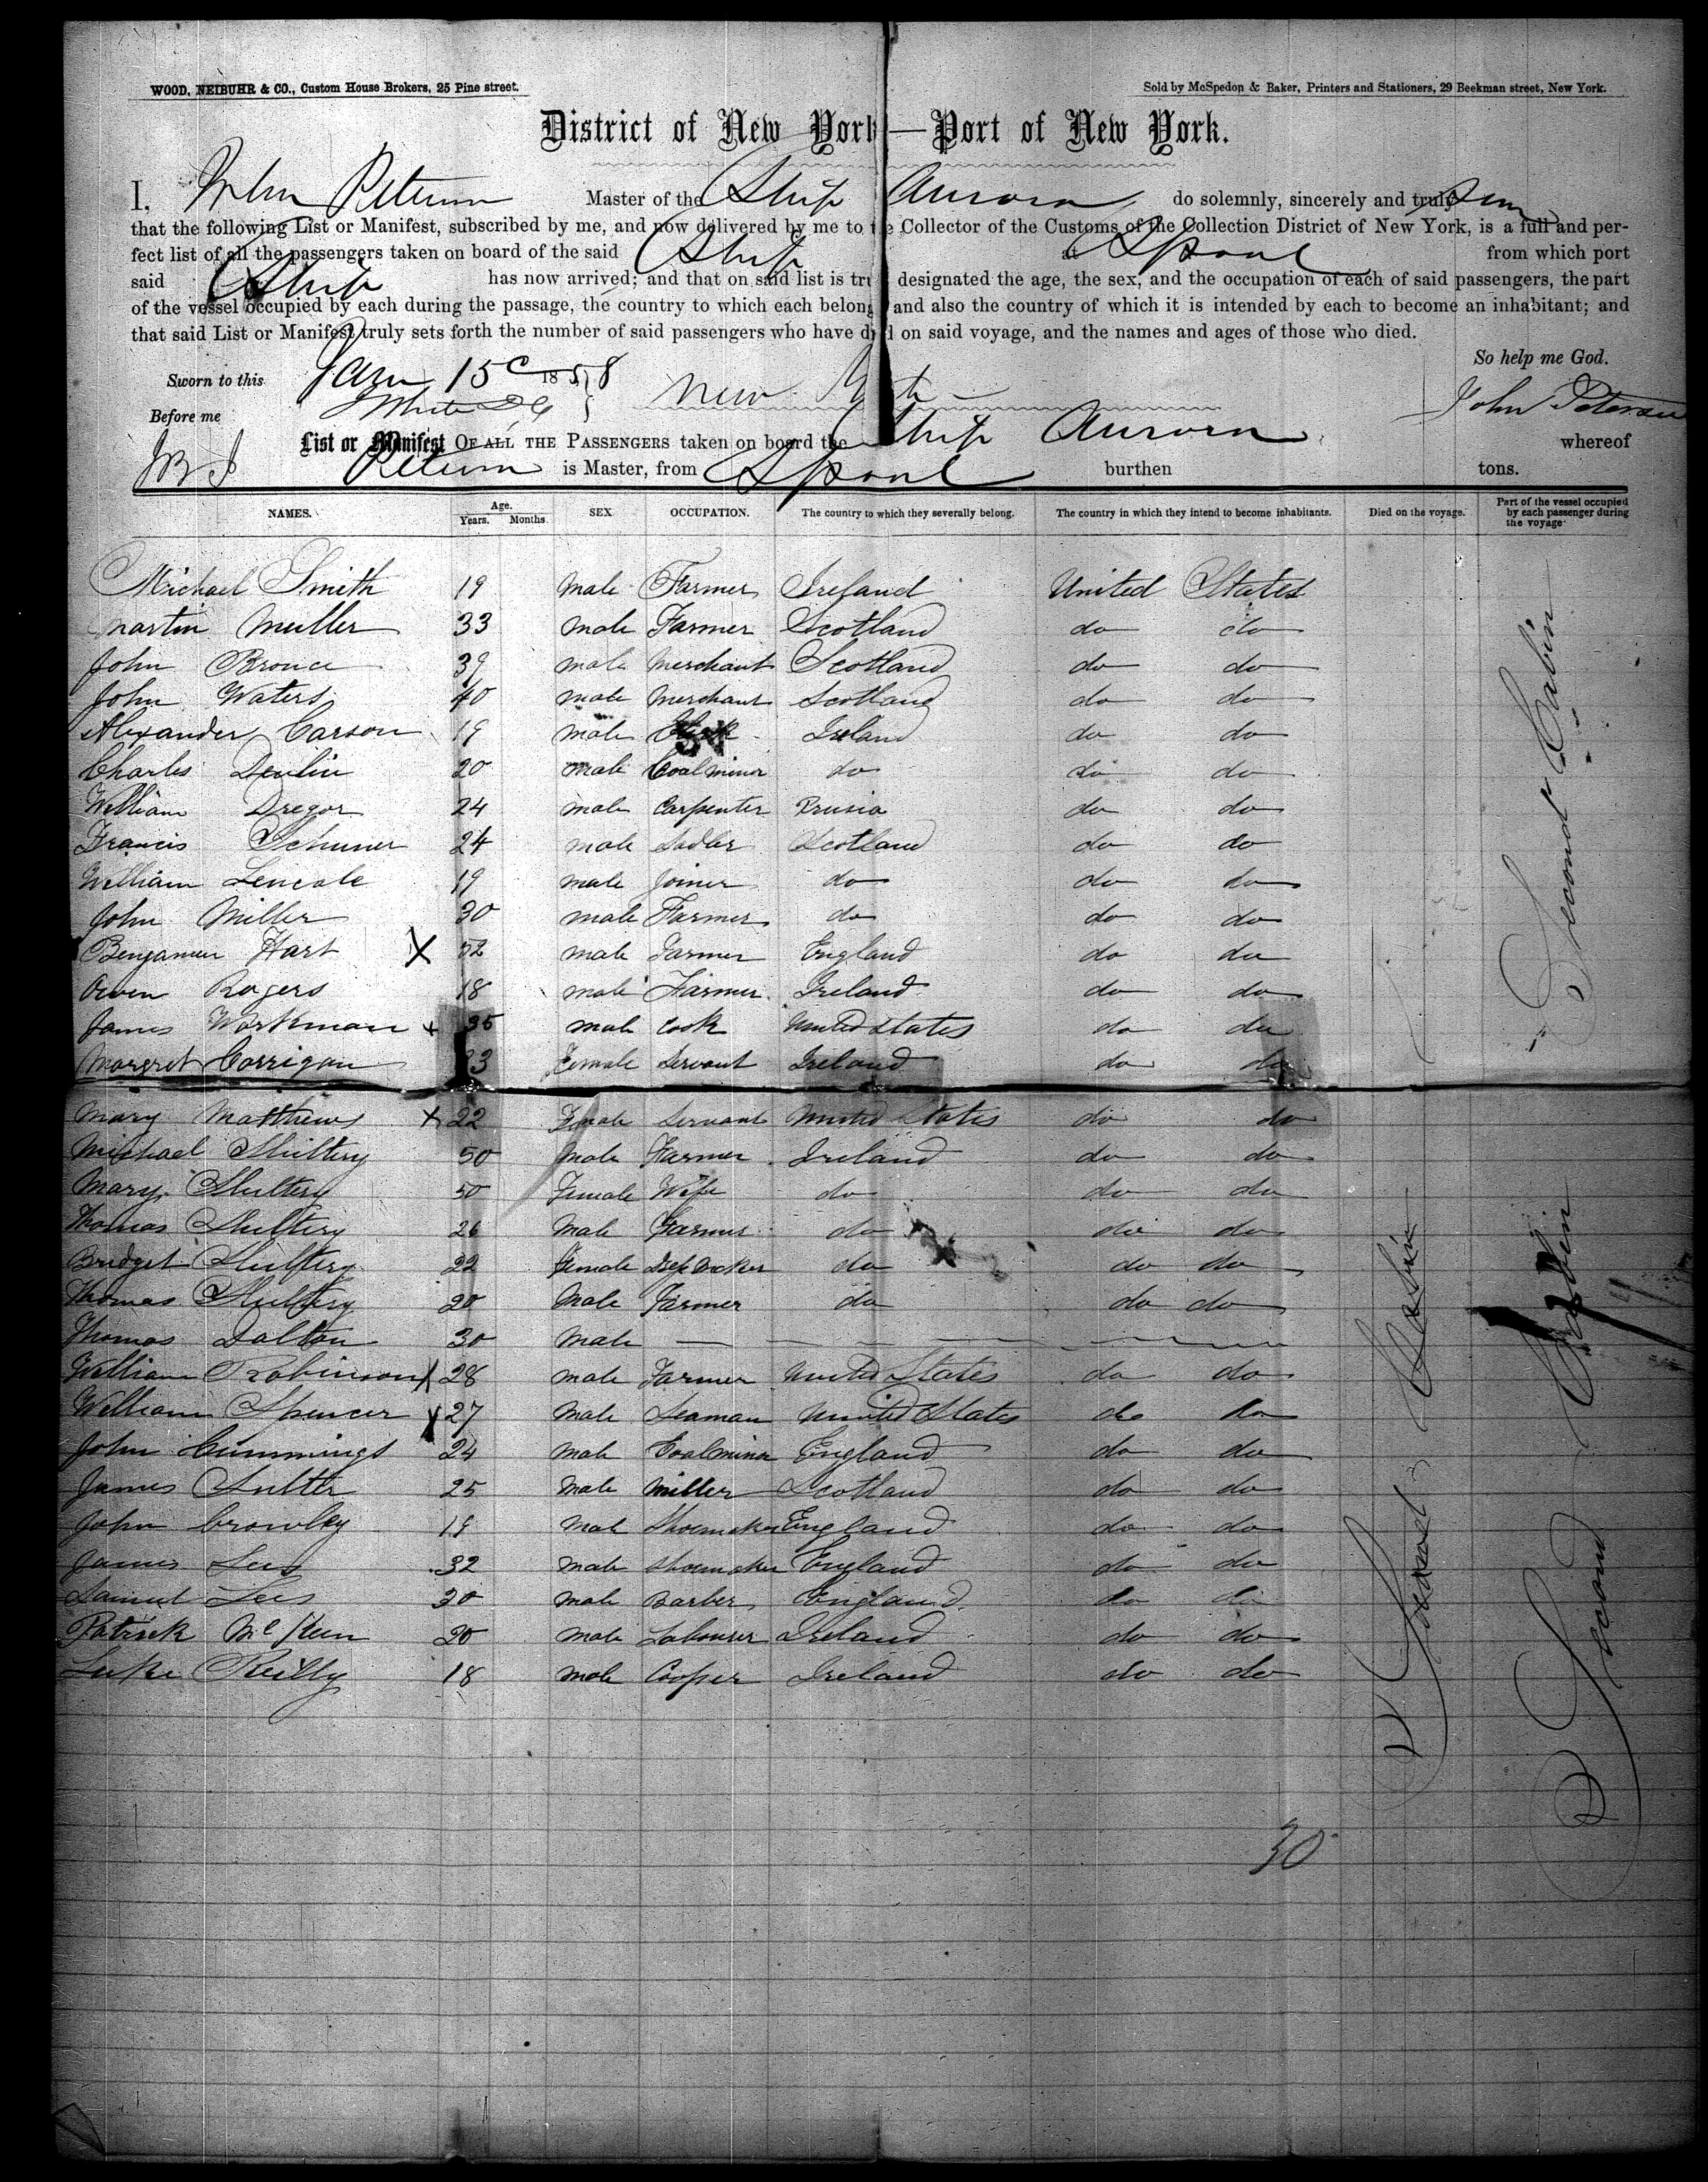 WOOD, NEIBUHR & CO., Custom House Brokers, 25 Pine street.
Sold by McSpedon & Baker, Printers and Stationers, 29 Beekman street, New York.
District of New York—Port of New York.
I, John Peterson Master of the Ship Aurora do solemnly, sincerely and truly
that the following List or Manifest, subscribed by me, and now delivered by me to the Collector of the Customs of the Collection District of New York, is a full and per-
fect list of all the passengers taken on board of the said Ship at Lpool from which port
said Ship has now arrived; and that on said list is tru designated the age, the sex, and the occupation of each of said passengers, the part
of the vessel occupied by each during the passage, the country to which each belong and also the country of which it is intended by each to become an inhabitant; and
that said List or Manifest truly sets forth the number of said passengers who have died on said voyage, and the names and ages of those who died.
So help me God.
Sworn to this Jany 15 1858 New York John Peterson
Before me
List or Manifest OF ALL THE PASSENGERS taken on board the Ship Aurora whereof
Peterson is Master, from Lpool burthen tons.
NAMES. Age. Years. Months. SEX. OCCUPATION. The country to which they severally belong. The country in which they intend to become inhabitants. Died on the voyage. Part of the vessel occupied by each passenger during the voyage
Michael Smith 19 male Farmer Ireland United States
Martin Muller 33 male Farmer Scotland do do
John Bronce 39 male Merchant Scotland do do
John Waters 40 male Merchant Scotland do do
Alexander Carson 19 male Clerk Ireland do do
Charles Devlin 20 male Coalminor do do do
William Dregor 24 male Carpenter Prusia do do
Francis Schuner 24 male Sadler Scotland do do
William Lencole 19 male Joiner do do do
John Miller 30 male Farmer do do do
Benjamen Hart X 52 male Farmer England do do
Owen Rogers 18 male Farmer Ireland do do
James Workman x 35 male Cook United States do do
Margret Corrigan 33 Female Servant Ireland do do
Mary Matthews x 22 Female Servant United States do do
Michael Sluttery 50 Male Farmer Ireland do do
Mary Sluttery 50 Female Wife do do do
Thomas Sluttery 26 Male Farmer do do do
Bridget Sluttery 22 Female do do do
Thomas Sluttery 20 Male Farmer do do do
Thomas Dalton 30 Male
William Robinson x 28 male Farmer United States do do
William Spencer x 27 Male Seaman United States do do
John Cummings 24 Male Coalminor England do do
James Sutter 25 Male Miller Scotland do do
John Crowley 19 Male Shoemaker England do do
James Lees 32 male Shoemaker England do do
Samuel Lees 30 male Barber England do do
Patrick McKeen 20 male Labourer Ireland do do
Luke Reilly 18 male Cooper Ireland do do
Second Cabin
Second Cabin
Second Cabin
30